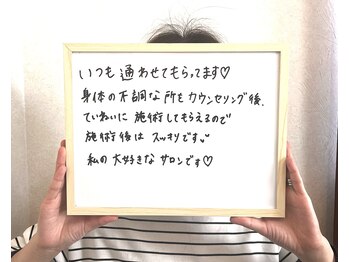 いつも通わせてもらってます♡
身体の不調な所をカウンセリング後、
ていねいに施術してもらえるので
施術後はスッキリです
私の大好きなサロンです♡